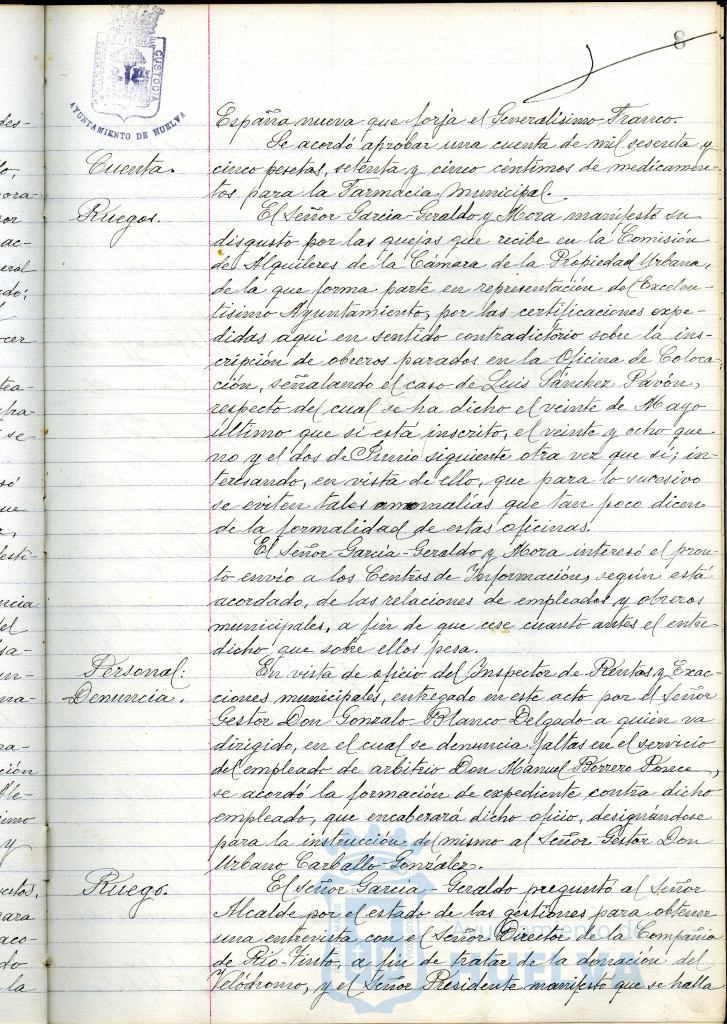 8
CUSTODIA
AYUNTAMIENTO DE HUELVA
España nueva que forja el Generalísimo Franco.
Cuenta.
Se acordó aprobar una cuenta de mil sesenta y
cinco pesetas, setenta y cinco céntimos de medicamen-
tos para la Farmacia municipal.
Ruegos.
El Señor García-Geraldo y Mora manifestó su
disgusto por las quejas que recibe en la Comisión
de Alquileres de la Cámara de la Propiedad Urbana,
de la que forma parte en representación del Excelen-
tísimo Ayuntamiento, por las certificaciones expe-
didas aquí en sentido contradictorio sobre la ins-
cripción de obreros parados en la Oficina de Coloca-
ción, señalando el caso de Luis Sánchez Pavón,
respecto del cual se ha dicho el veinte de Mayo
último que si está inscrito, el veinte y ocho que
no y el dos de Junio siguiente otra vez que sí; in-
teresando, en vista de ello, que para lo sucesivo
se eviten tales anomalías que tan poco dicen
de la formalidad de estas oficinas.
El Señor García-Geraldo y Mora interesó el pron-
to envío a los Centros de Información, según está
acordado, de las relaciones de empleados y obreros
municipales, a fin de que cese cuanto antes el entre-
dicho que sobre ellos pesa.
Personal:
Denuncia.
En vista de oficio del Inspector de Rentas y Exac-
ciones municipales, entregado en este acto por el Señor
Gestor Don Gonzalo Blanco Delgado a quien va
dirigido, en el cual se denuncia faltas en el servicio
del empleado de arbitrio Don Manuel Borrero Ponce,
se acordó la formación de expediente contra dicho
empleado, que encabezará dicho oficio, designándose
para la instrucción del mismo al Señor Gestor Don
Urbano Carballo González.
Ruego.
El Señor García-Geraldo preguntó al Señor
Alcalde por el estado de las gestiones para obtener
una entrevista con el Señor Director de la Compañía
de Río-Tinto, a fin de tratar de la donación del
Velódromo, y el Señor Presidente manifestó que se halla
Ayuntamiento de
HUELVA